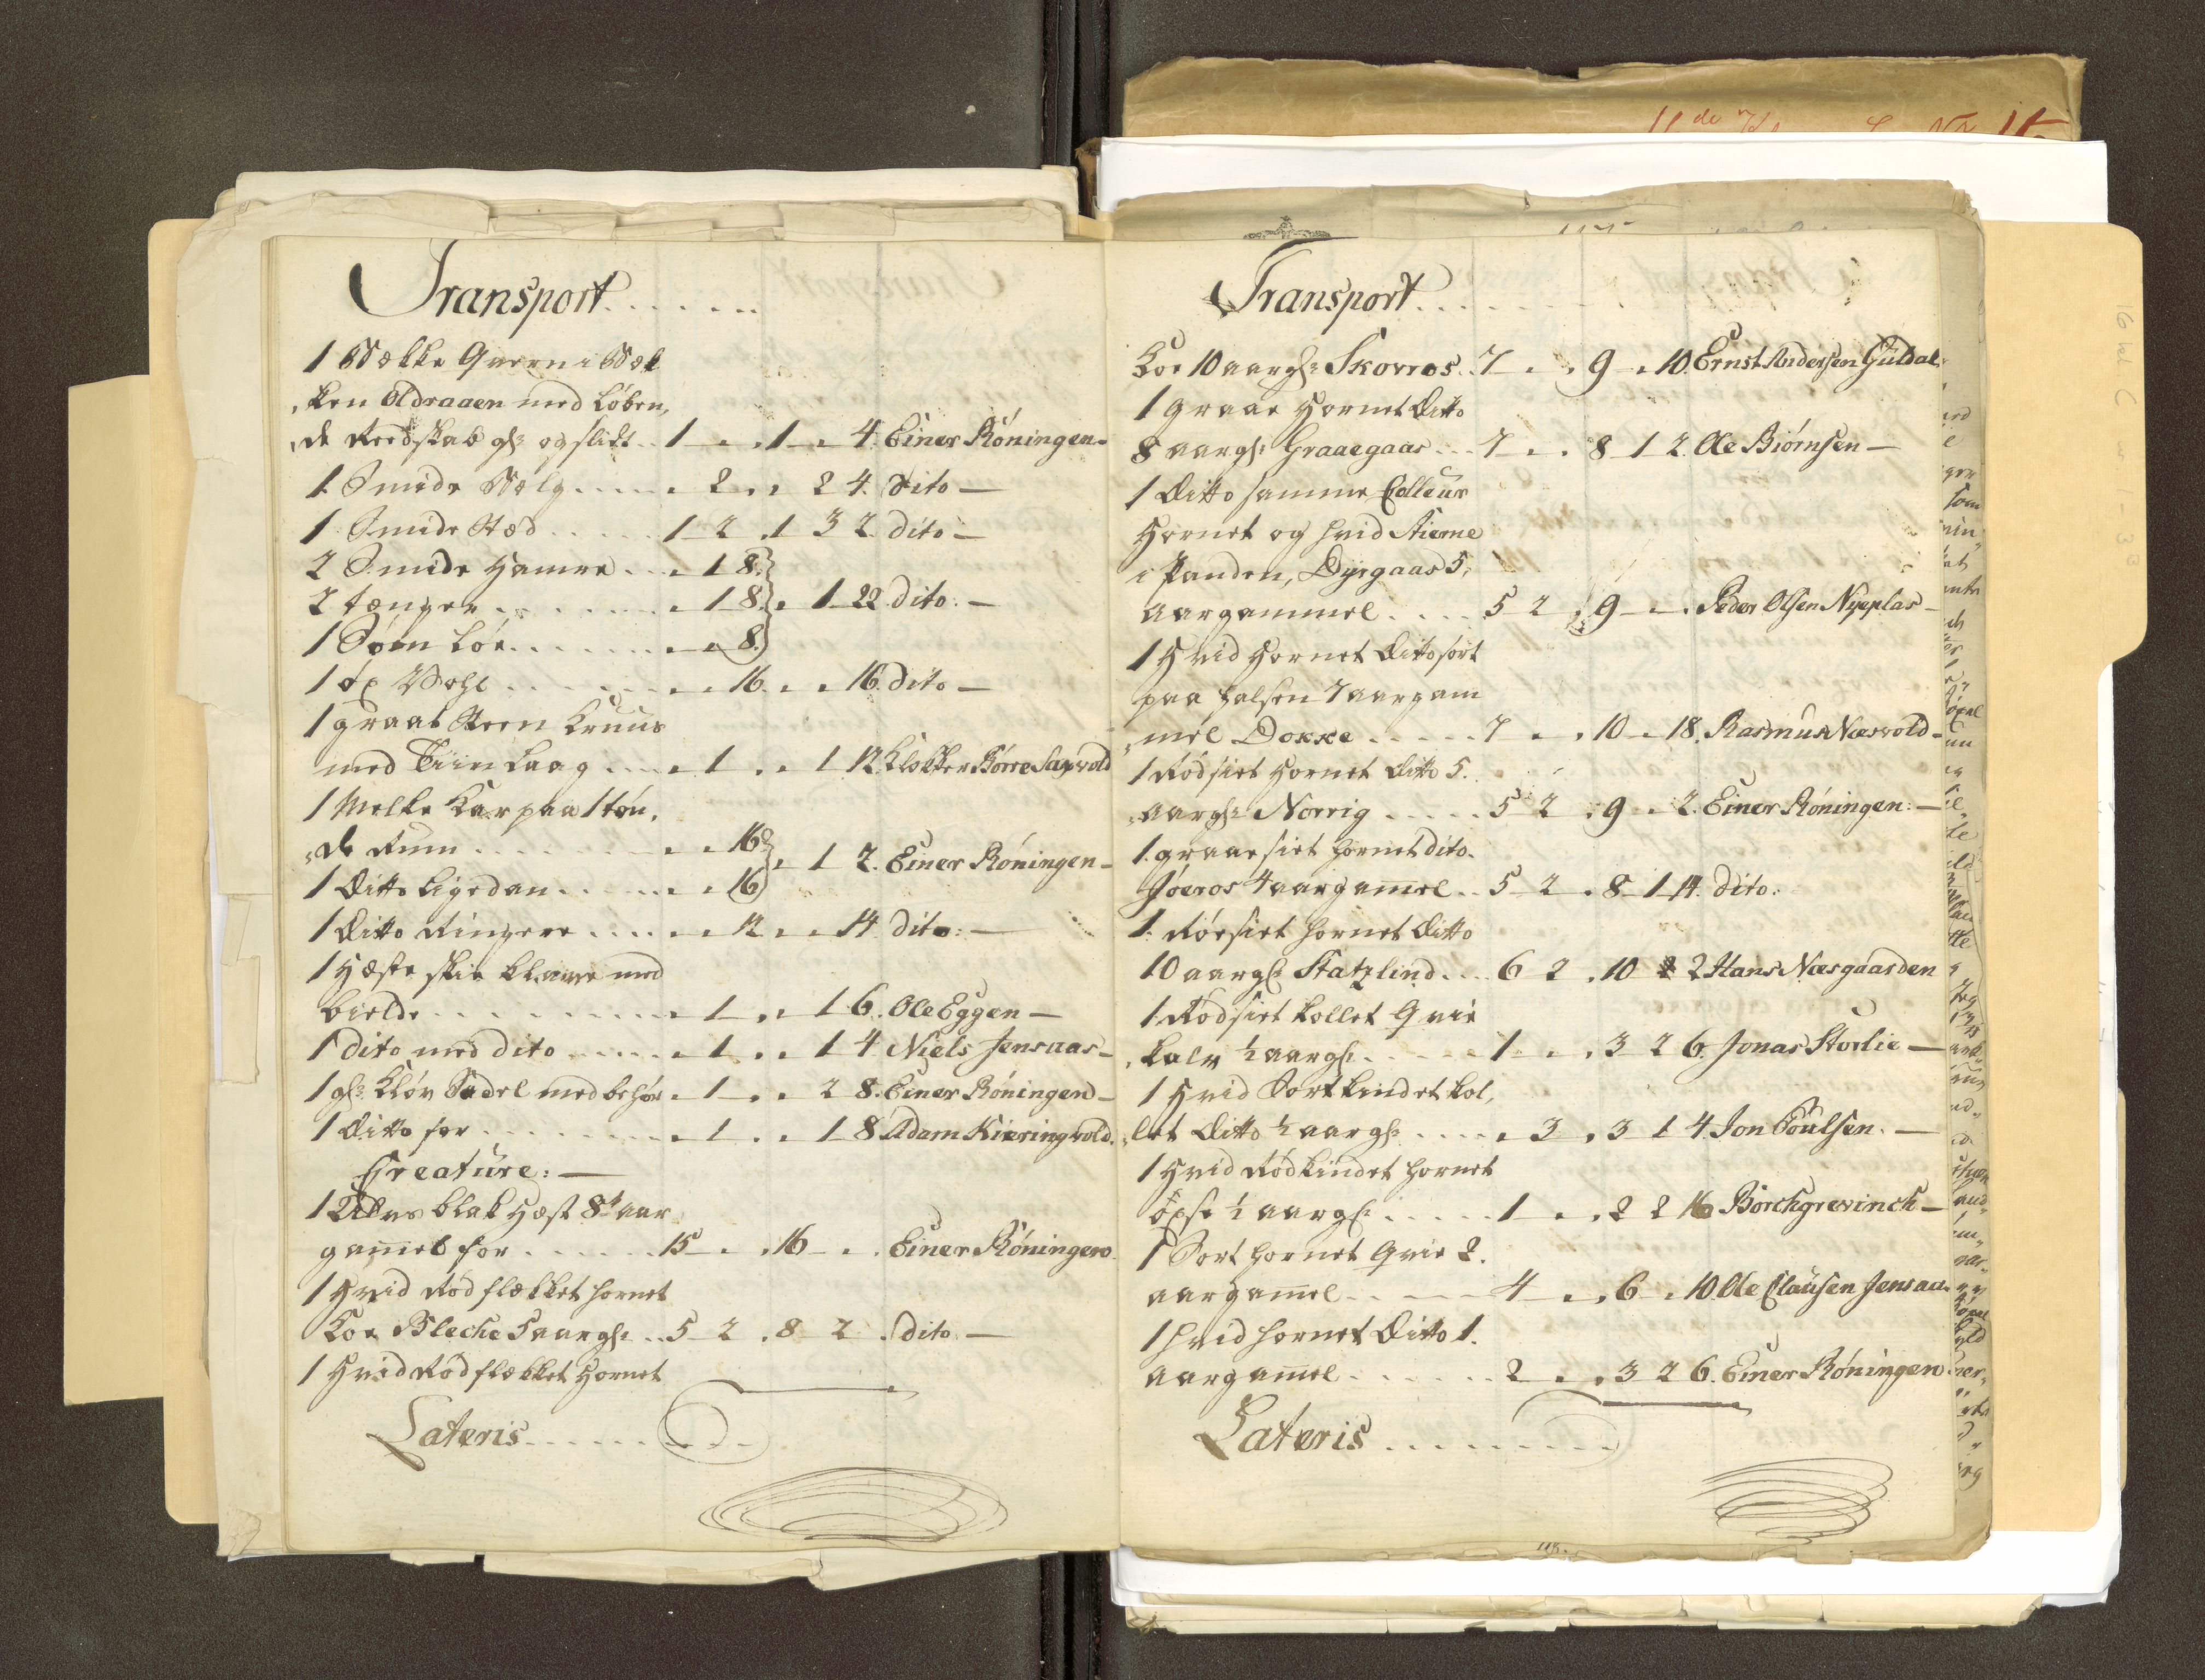 Transport . . . . . .
1 Bække Qvern i Bæk
„ken Oldraaen med Løben„
„de Reedskab gl: og slidt . . 1 „ „ 1 „ 4. Einer Röningen
1 Smide Bælg . . . . „ 2 „ „ 2 4. Dito —
1 Smide Stæd . . . . 1 2 „ 1 3 2. dito —
2 Smide Hamre . . „ 1 8.
2 tænger . . . . . „ 1 8. „ 1 22. dito. —
1 Söm Löe . . . . . „ „ 8.
1 öx . . . . . „ „ 16. „ „ 16. dito —
1 graat Steen Kruus
med Tiin Laag . . . „ 1 „ „ 1 12. Klokker Börre Sapvold
1 Melke Kar paa 1 tön„
„de Rum . . . . . „ „ 16
1 Ditto Ligedan . . . . „ „ 16 „ 1 2. Einer Röningen —
1 Ditto Ringere . . . . „ „ 12 „ „ 14. dito: —
1 Hæste med
bielde . . . . . . „ 1 „ „ 1 6. Ole Eggen —
1 dito med dito . . . . „ 1 „ „ 1 4. Niels Jensaas —
1 gl: Kløv Sadel med behör „ 1 „ „ 2 8. Einer Röningen —
1 Ditto for . . . . . „ 1 „ „ 1 8 Adam Kieringvold.
Creature: —
1 blak Hæst 8 aar
gammel for . . . . . 15 „ „ 16 „ „ Einer Röningen
1 Hvid Rød flækket hornet
Koe Bleche 5 aar gl: . . 5 2 „ 8 2 „ dito —
1 Hvid Rød flækket Hornet
Lateris . . . . . . .
Transport . . . . . .
Koe 10 aar gl: Skovros . 7 „ „ 9 „ 10. Ernst Andersen Guldal
1 graae Hornet Ditto
8 aar gl: Graaegaas . . . 7 „ „ 8 1 2. Ole Biörnsen —
1 Ditto samme Colleur
Hornet og hvid Stierne
i Panden, Dyregaas 5„
aar gammel . . . . 5 2 „ 9 „ „ Peder Olsen Nyeplas —
1 Hvid Hornet Ditto sort
paa halsen 7 aar gam
„mel Dokke . . . . . 7 „ „ 10 „ 18. Rasmus Næsvold —
1 Rödsiet Hornet Ditto 5.
„aar gl: Norrig . . . . . 5 2 „ 9 „ 2. Einer Röningen: —
1 graaesiet hornet dito.
Jöeros 4 aar gammel . . 5 2 „ 8 1 14. dito:
1 Röesiet hornet Ditto
10 aar gl: Statzlind . . . 6 2 „ 10 2 Hans Næsgaarden
1 Rödsiet kollet Qvie
„kalv ½ aar gl: . . . . . 1 „ „ 3 2 6. Jonas Storlie —
1 Hvid Sortkindet kol„
„let Ditto ½ aar gl: . . . . „ 3 „ 3 1 4 Jon Poulsen. —
1 Hvid Rödkindet hornet
öxe ½ aar gl: . . . . . 1 „ „ 2 2 16 Borchgrevinck —
1 Sort hornet Qvie 2.
aar gammel . . . . 4 „ „ 6 „ 10. Ole Clausen Jensaa
1 hvid hornet Ditto 1.
aar gammel . . . . . . 2 „ „ 3 2 6. Einer Röningen
Lateris . . . . . . . .